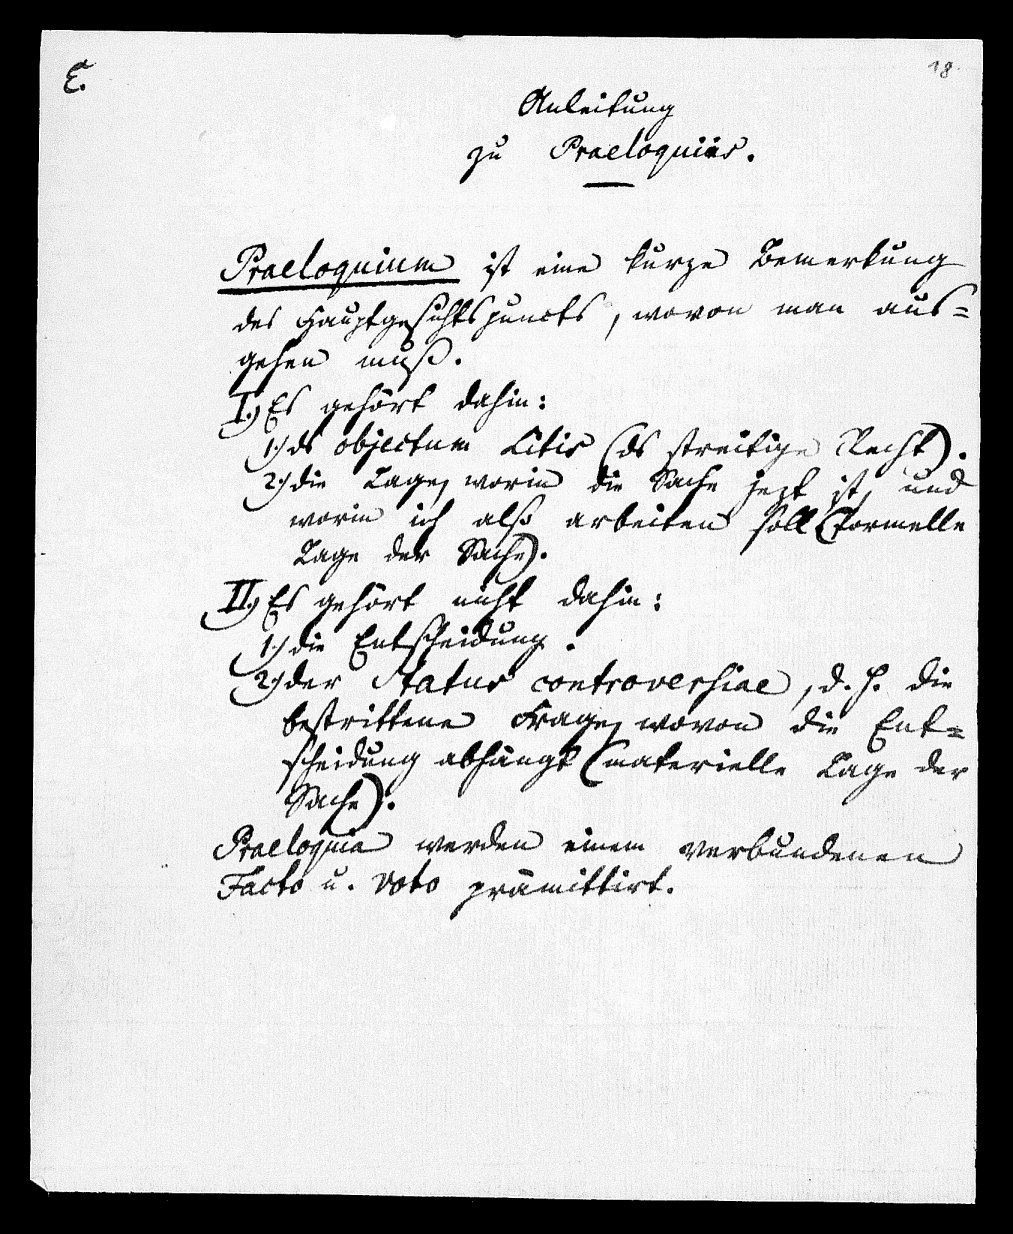 E.
18.
Anleitung
zu Praeloquiis.
Praeloquium ist eine kurze Bemerkung
des Hauptgesichtspuncts, wovon man aus=
gehen muß.
I.) Es gehört dahin:
1.) ds objectum Litis (ds streitige Recht).
2.) die Lage, worin die Sache jezt ist, und
worin ich also arbeiten soll (formelle
Lage der Sache).
II.) Es gehört nicht dahin:
1.) die Entscheidung.
2.) der Status controversiae, d. h. die
bestrittene Frage, wovon die Ent=
scheidung abhängt (materielle Lage der
Sache).
Praeloquia werden einem verbundenen
Facto u. Voto prämittirt.